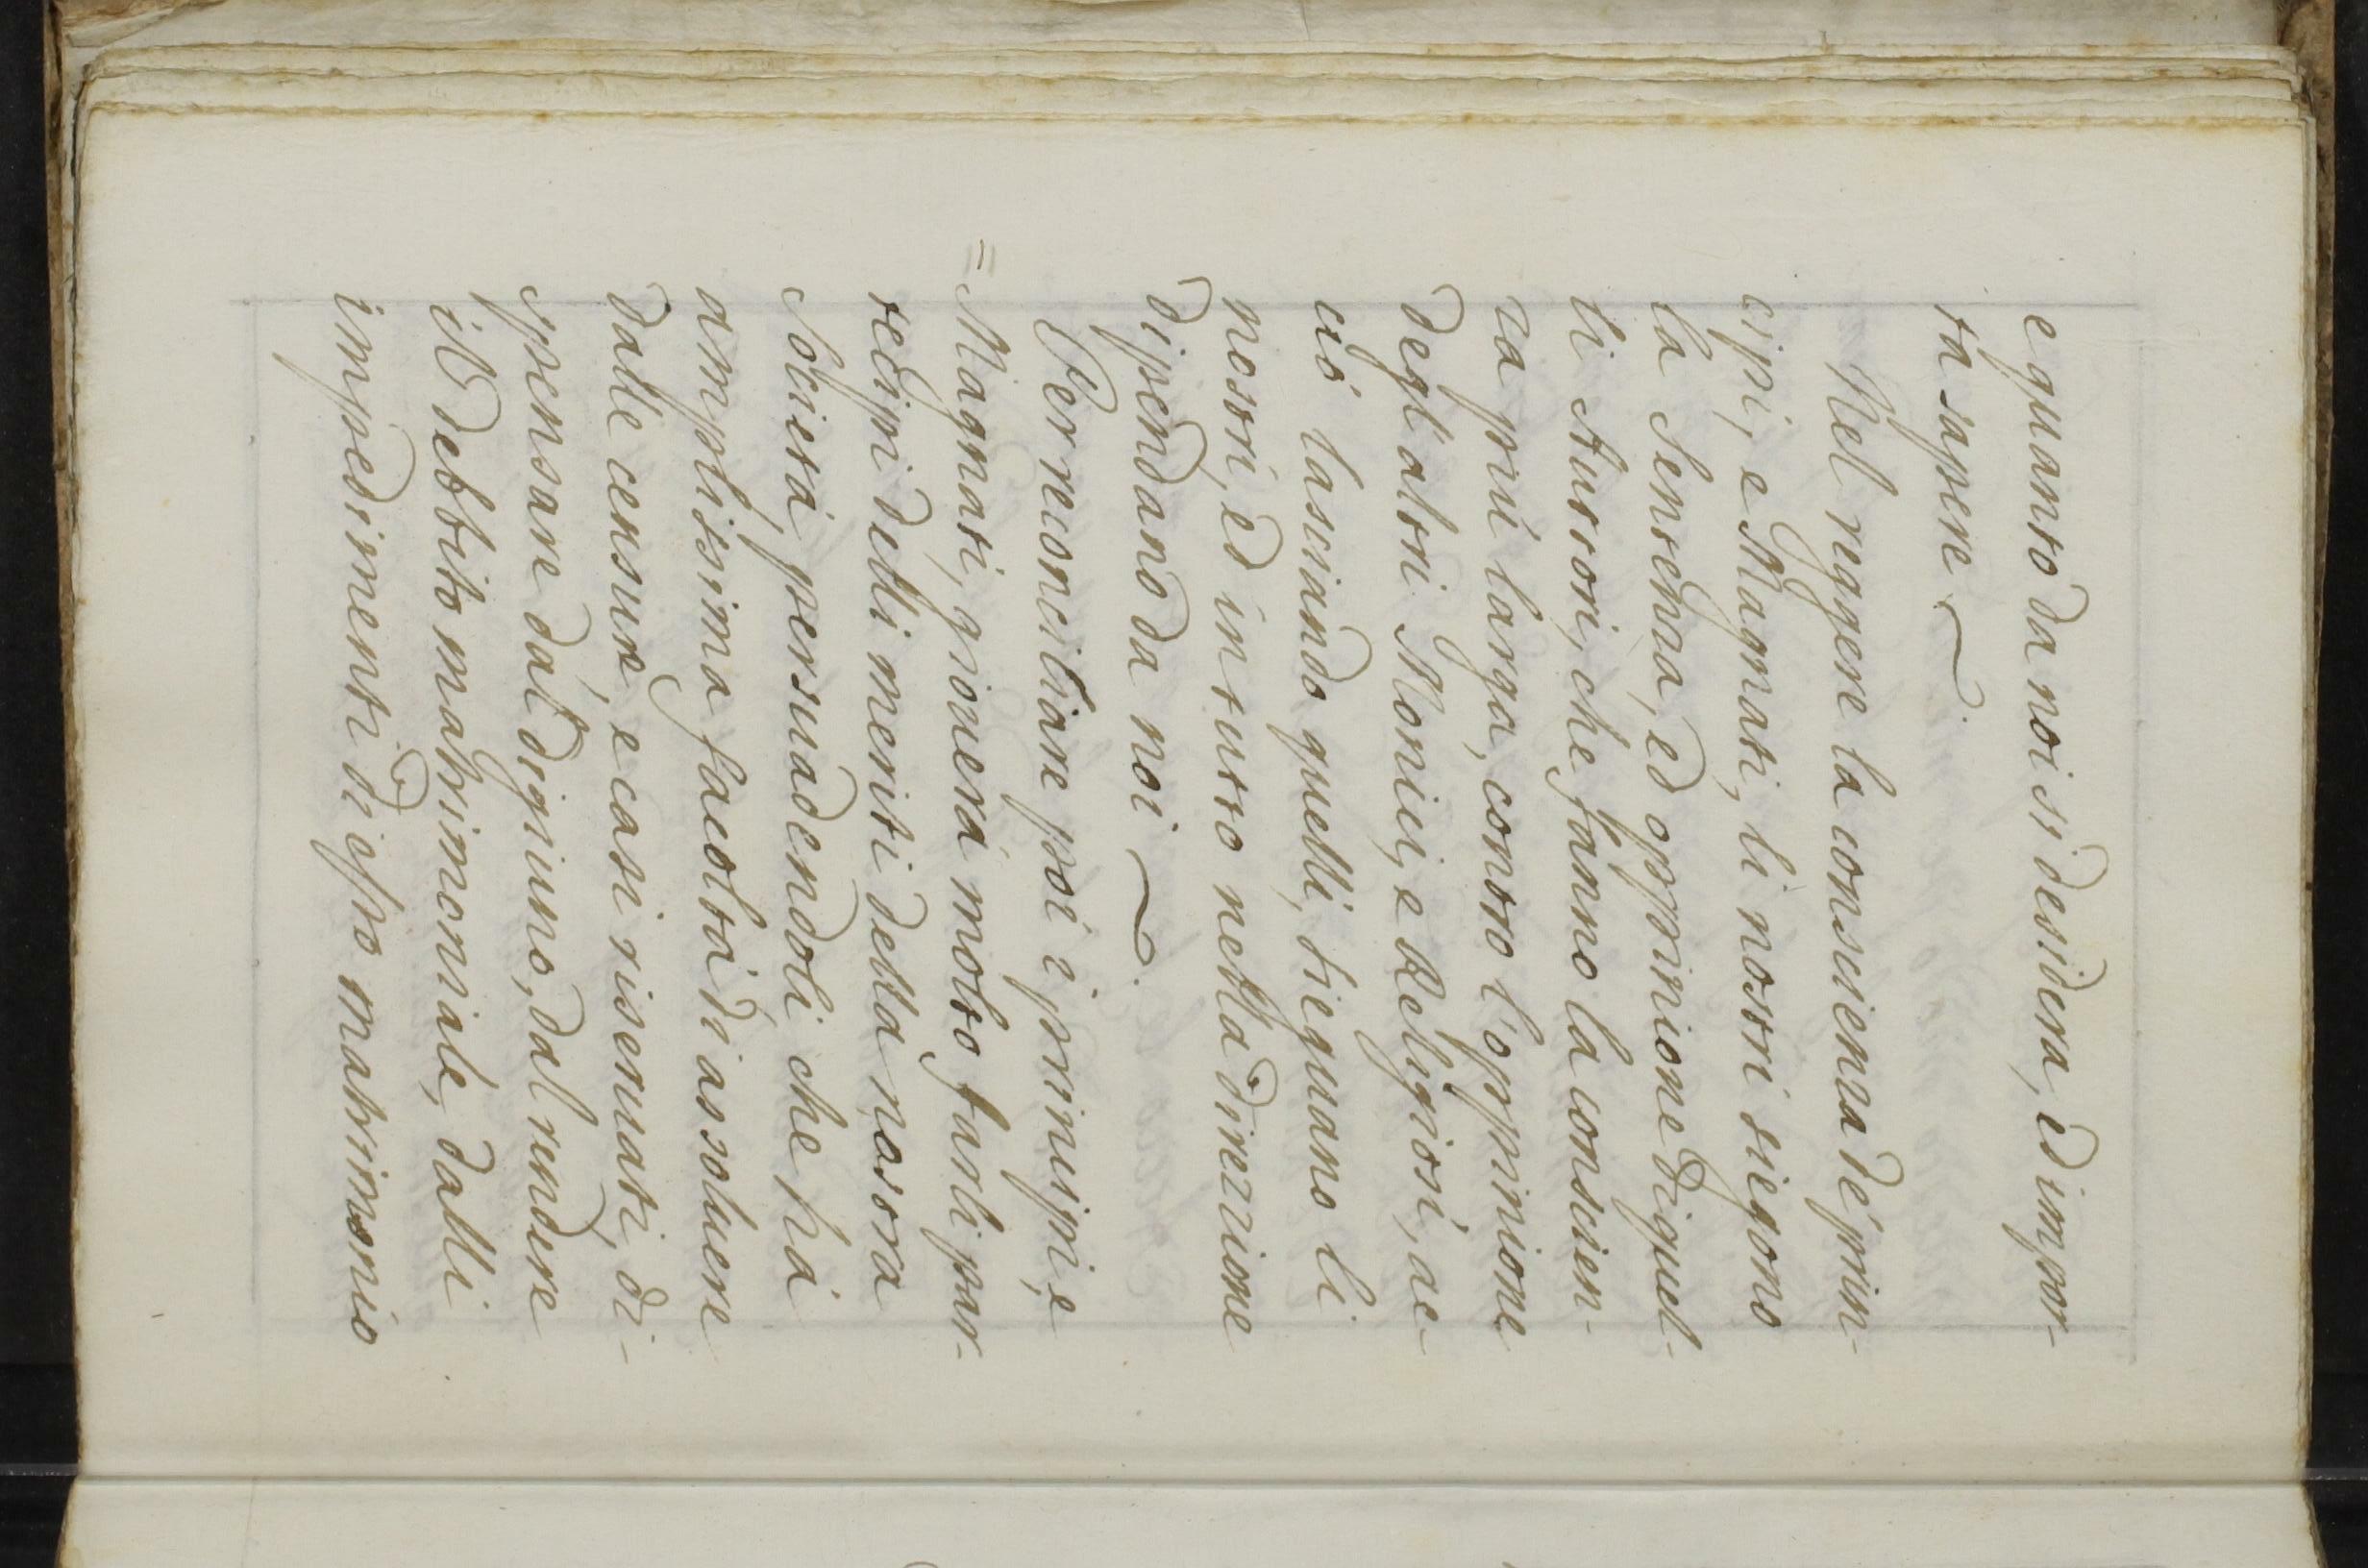 e quanto da noi si desidera, ed impor-
ta sapere
Nel reggere la conscienza de' prin-
cipi, e Magnati, li nostri siegono
la sentenza, ed oppinione di quel-
li Auttori, che fanno la conscien-
za piú larga, contro l'oppinione
degl'altri Monici, e Religiosi, ac-
ció lasciando quelli, sieguano li
nostri, ed in tutto nella direzzione
dipendano da noi
Per reconciliare poi i principi, e
Magnati, giouerá molto farli par-
=tecipi delli meriti della nostra
Societá, persuadendoli, che há
amplissima facoltá di assoluere
dalle censure, e casi riseruati, di-
spensare dal digiuno, dal rendere
il debbito matrimoniale, dalli
impedimenti di esso matrimonio